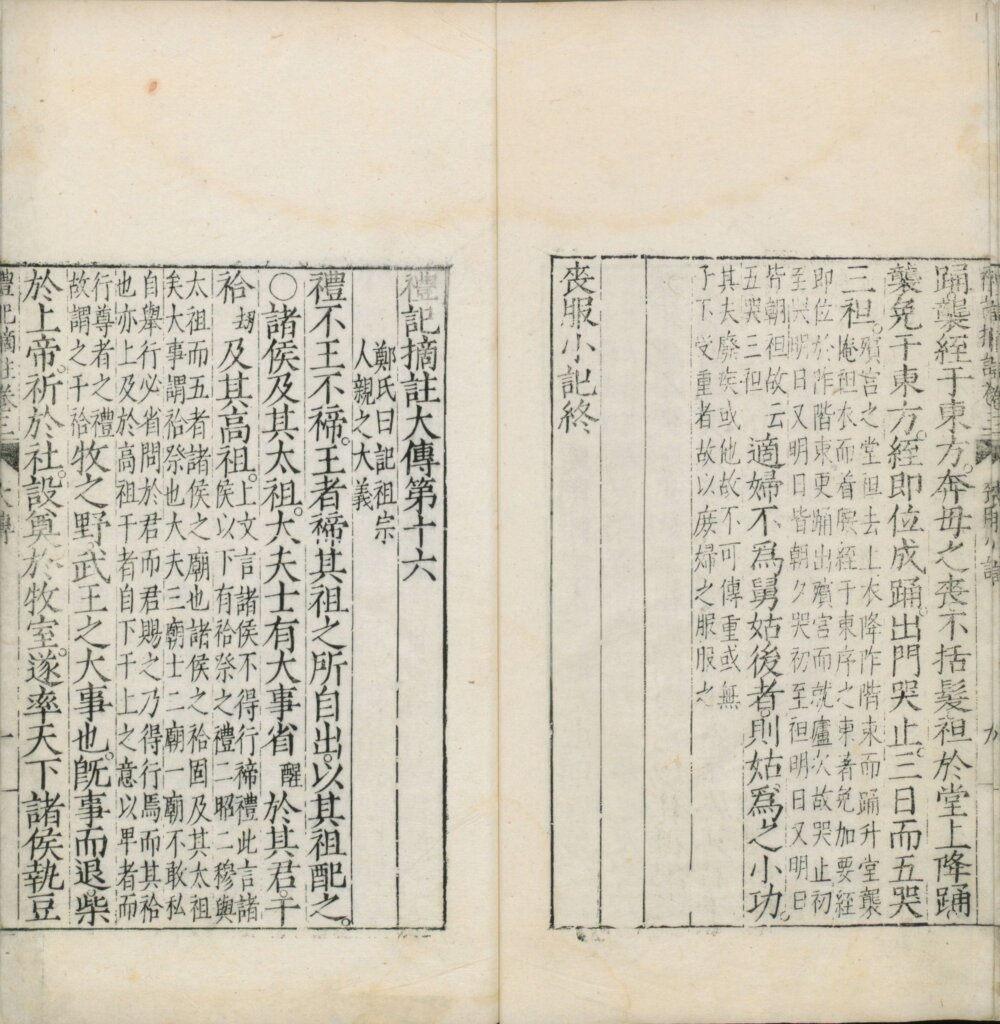 踊襲絰于東方奔母之喪不括髮袒於堂上降踊
襲免于東方絰即位成踊出門哭止三日而五哭
三袒
殯宮之堂袒去上衣降阼階東而踊升堂襲
掩袒衣而着要絰于東序之東著免加要絰
即位於阼階東更踊出殯宮而就廬次故哭止初
至哭明日又明日皆朝夕哭初至袒明日又明日
皆朝袒故云
五哭三袒
適婦不爲舅姑後者則姑爲之小功
其夫廢疾或他故不可傳重或無
子不受重者故以庶婦之服服之
喪服小記終
禮記摘註大傳第十六
鄭氏曰記祖宗
人親之大義
禮不王不禘王者禘其祖之所自出以其祖配之
○諸侯及其太祖大夫士有大事省醒於其君干
祫刼及其高祖
上文言諸侯不得行禘禮此言諸
侯以下有祫祭之禮二昭二穆與
太祖而五者諸侯之廟也諸侯之祫固及其太祖
矣大事謂祫祭也大夫三廟士二廟一廟不敢私
自舉行必省問於君而君賜之乃得行焉而其祫
也亦上及於高祖干者自下干上之意以卑者而
行尊者之禮
故謂之干祫
牧之野武王之大事也旣事而退柴
於上帝祈於社設奠於牧室遂率天下諸侯執豆
禮記摘註卷三
大傳
一